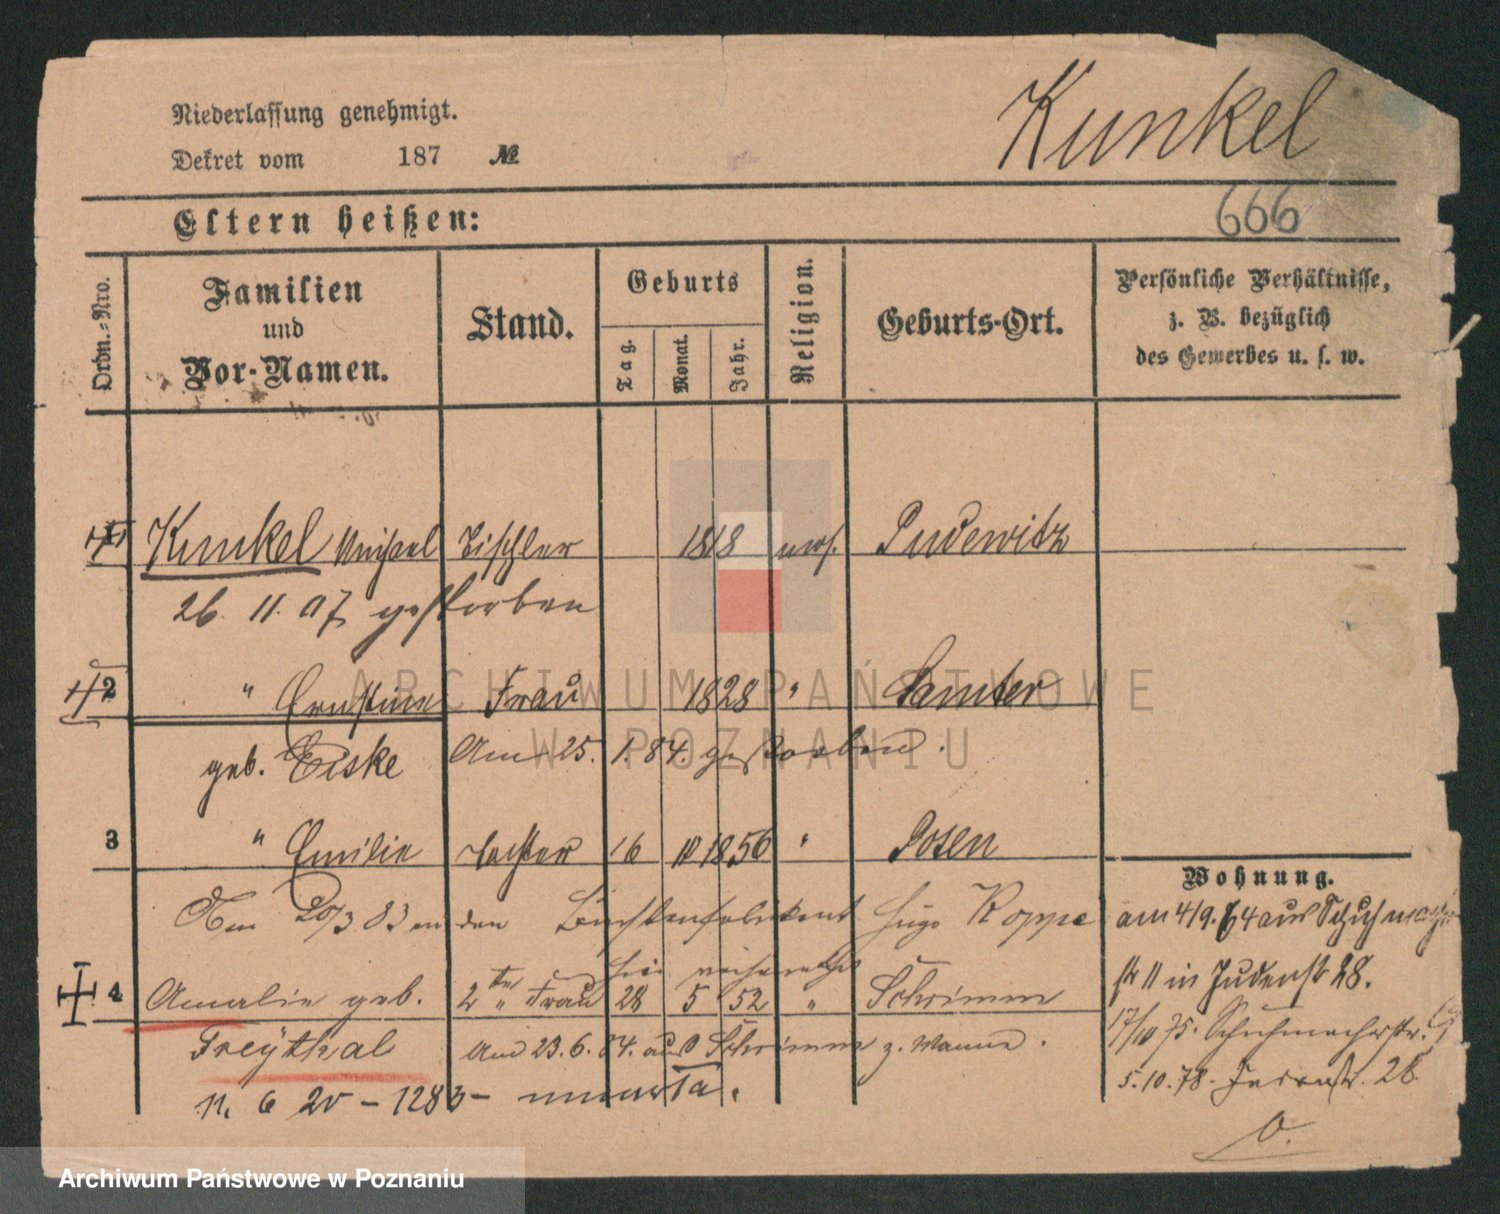 Niederlassung genehmigt.
Kunkel
Dekret vom 187 №
666
Eltern heißen:
Ordn.-Nro.
Familien und Vor-Namen.
Stand.
Geburts
Tag.
Monat.
Jahr.
Religion.
Geburts-Ort.
Persönliche Verhältnisse,
z. B. bezüglich
des Gewerbes u. s. w.
1 Kunkel Michael Tischler 1818 mos. Pudewitz
26. 11. 07 gestorben
2 " Ernstine Frau 1828 " Samter
geb. Eiske Am 25. 1. 84. gestorben.
3 " Emilie Tochter 16 10 1856 " Posen
Wohnung.
Am 20/3 83 an den Hugo Koppe
am 4/9. 74 aus Schuhmacher
str 11 in Judenstr 28.
4 Amalie geb. 2te " Frau 28 5 52 " Schrimm
17/10 75. Schuhmacherstr.
Freythal Am 23. 6. 84. aus Schrimm z. Manne.
5. 10. 78. 28.
n. 6 20 – 1283 –
ARCHIWUM PAŃSTWOWE
W POZNANIU
Archiwum Państwowe w Poznaniu